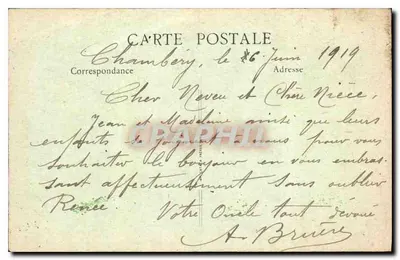 CARTE POSTALE
Chambéry, le 26 Juin 1919
Correspondance Adresse
Cher Neveu et Chère Nièce,
Jean et Madeleine ainsi que leurs
enfants se joignent à nous pour vous
souhaiter le bonjour en vous embras-
sant affectueusement sans oublier
Renée. Votre Oncle tout dévoué
A. Brière